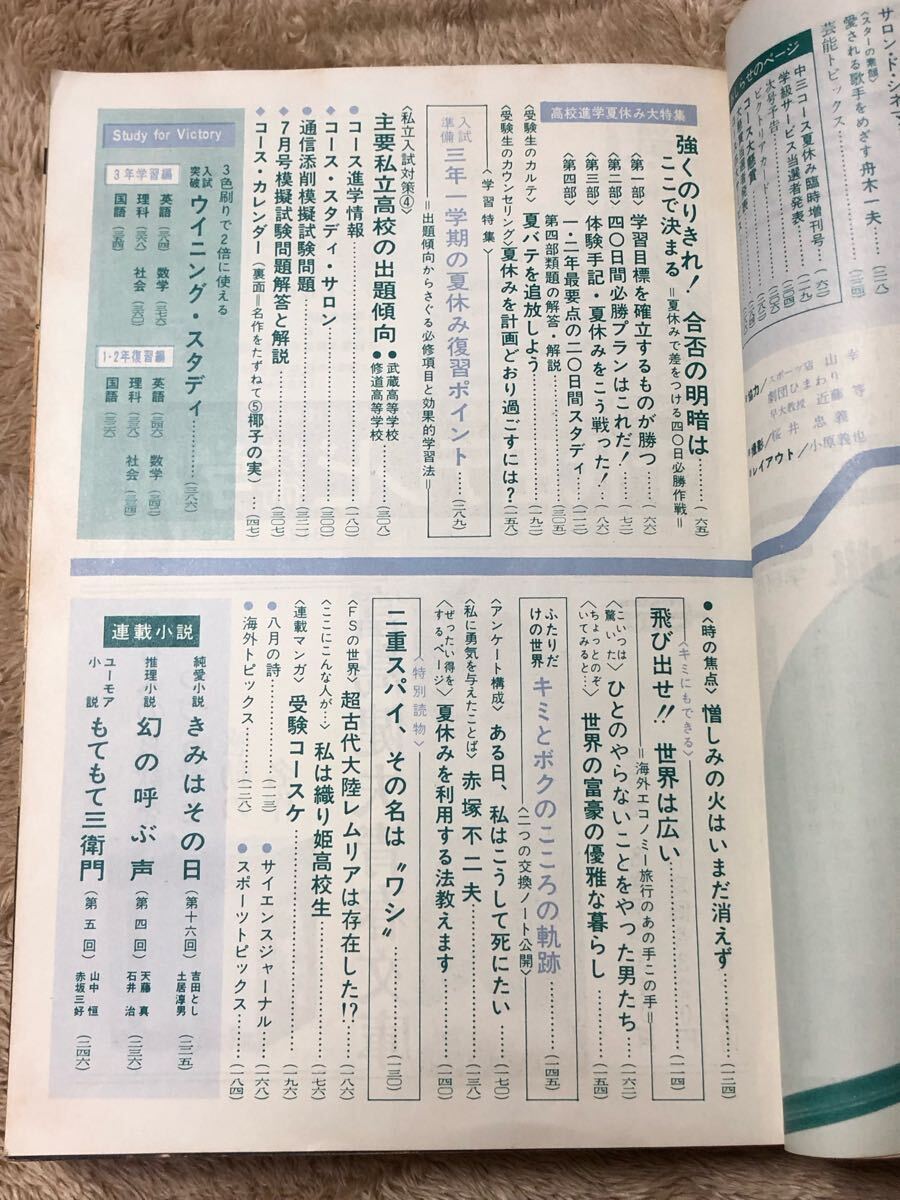 サロン・ド・シネマ
〈スターの素顔〉
愛される歌手をめざす舟木一夫…(三一八)
芸能トピックス………(三三四)
らせのページ
中三コース夏休み臨時増刊号…(六一)
学級サービス当選者発表…(二一九)
次号予告
ビクトリアカード
コース大懸賞
協力/スポーツ店 山幸
劇団ひまわり
早大教授 近藤 等
撮影/桜井忠義
レイアウト/小原義也
高校進学夏休み大特集
強くのりきれ! 合否の明暗は
ここで決まる =夏休みで差をつける四〇日必勝作戦=……(六五)
〈第一部〉学習目標を確立するものが勝つ…(六六)
〈第二部〉四〇日間必勝プランはこれだ!…(七二)
〈第三部〉体験手記・夏休みをこう戦った!…(八六)
〈第四部〉一・二年最要点の二〇日間スタディ…(二一二)
第四部類題の解答・解説………(三〇五)
〈受験生のカルテ〉夏バテを追放しよう………(一九二)
〈受験生のカウンセリング〉夏休みを計画どおり過ごすには?…(一五八)
〈学習特集〉
入試準備 三年一学期の夏休み復習ポイント………(二八九)
=出題傾向からさぐる必修項目と効果的学習法=
〈私立入試対策④〉
主要私立高校の出題傾向 ●武蔵高等学校 ●修道高等学校……(三〇八)
●コース進学情報………(一八〇)
◆コース・スタディ・サロン………(三〇〇)
●通信添削模擬試験問題………(三二一)
◆7月号模擬試験問題解答と解説………(三〇七)
◆コース・カレンダー(裏面=名作をたずねて⑤椰子の実)…(四七)
Study for Victory
3色刷りで2倍に使える
入試突破 ウイニング・スタディ………(三八六)
3年学習編
英語(三八四) 数学(三七六)
理科(三六八) 社会(三六〇)
国語(三五四)
1・2年復習編
英語(三四六) 数学(三四二)
理科(三三八) 社会(三三四)
国語(三三六)
●〈時の焦点〉憎しみの火はいまだ消えず………(一二四)
〈キミにもできる〉
飛び出せ!! 世界は広い………(一一四)
=海外エコノミー旅行のあの手この手=
〈こいつは驚いた〉ひとのやらないことをやった男たち…(一六二)
〈ちょっとのぞいてみると…〉世界の富豪の優雅な暮らし………(一五四)
ふたりだけの世界 キミとボクのこころの軌跡………(一四五)
〈二つの交換ノート公開〉
〈アンケート構成〉ある日、私はこうして死にたい………(一七〇)
〈私に勇気を与えたことば〉赤塚不二夫………(一三八)
〈ぜったい得をするページ〉夏休みを利用する法教えます………(一四〇)
〈特別読物〉
二重スパイ、その名は〝ワシ〟………(一三〇)
〈FSの世界〉超古代大陸レムリアは存在した!?………(一八六)
〈ここにこんな人が…〉私は織り姫高校生………(一七六)
〈連載マンガ〉受験コースケ………(一九六)
●八月の詩………(二一三)
●サイエンスジャーナル………(一六八)
●海外トピックス………(一二八)
●スポーツトピックス………(一八四)
連載小説
純愛小説 きみはその日(第十六回) 吉田とし 土居淳男(二二五)
推理小説 幻の呼ぶ声(第四回) 天藤真 石井治(二三六)
ユーモア小説 もてもて三衛門(第五回) 山中恒 赤坂三好(二四六)